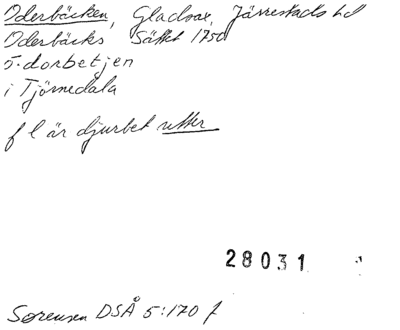 Oderbäcken, Gladsax, Järrestads hd
Oderbäcks Sättet 1750
i Tjörnedala
f l är djurbet utter
28031
Sørensen DSÅ 5:170 f